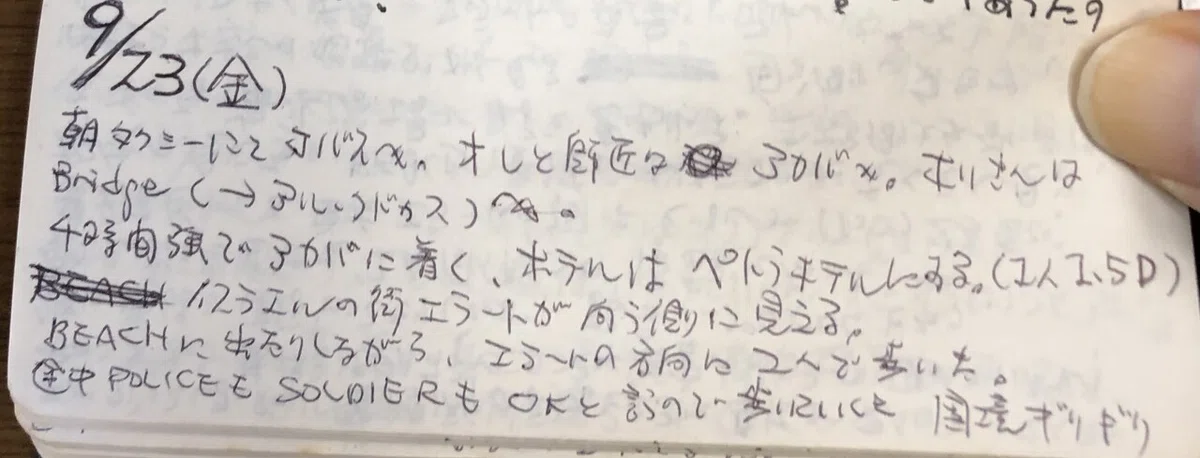 9/23(金)
朝タクシーにて オバスへ。オレと師匠は アカバへ。ホリさんは
Bridge (→アル・ドカス)へ。
4時間強でアカバに着く、ホテルは ペトラホテルにする。(1人1.5D)
BEACH イスラエルの街エラートが向う側に見える。
BEACHに出たりしながら、エラートの方向に2人で歩いた。
途中POLICEもSOLDIERもOKと言うので歩いていくと国境ギリギリ